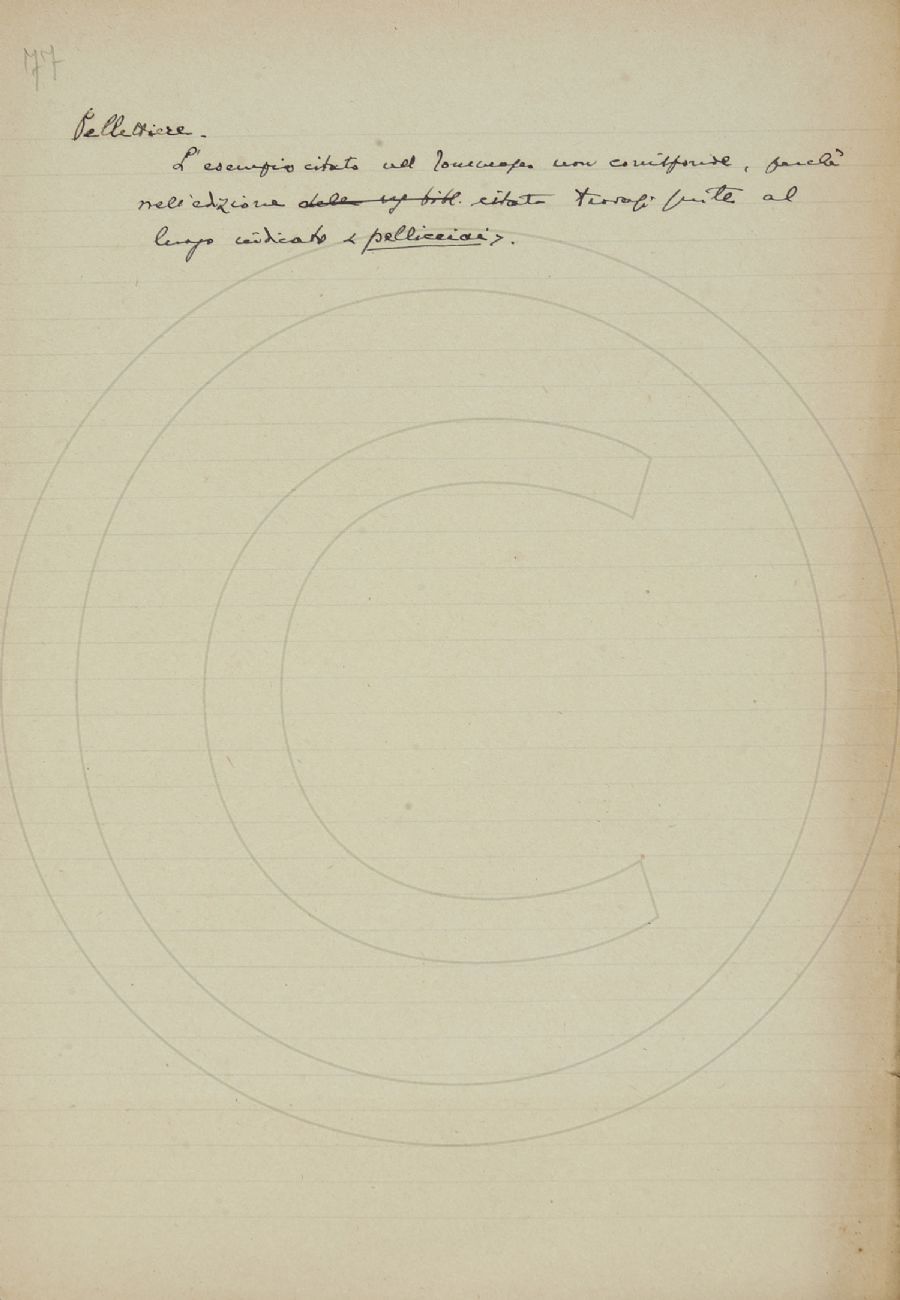 77
Pellettiere.
L'esempio citato nel Tommaseo non corrisponde, perchè
nell'edizione della citata trovasi al
luogo indicato « pellicciai ».